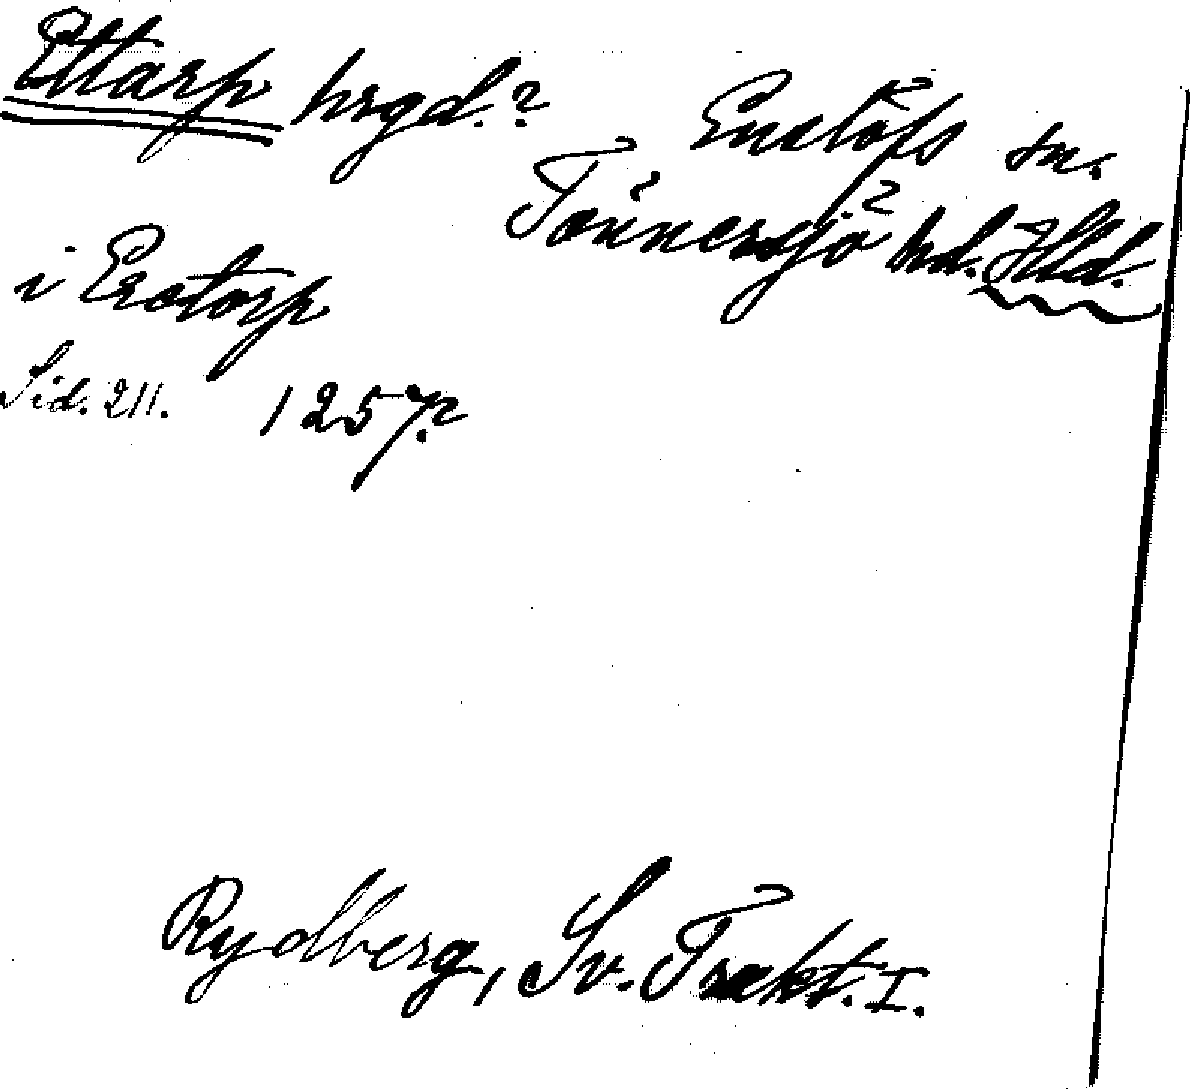 Ettarp hrgd.? Enslöfs sn.
Tönnersjö hd. Hld.
i Erstorp
Sid. 211. 1257?
Rydberg, Sv. Trakt. I.